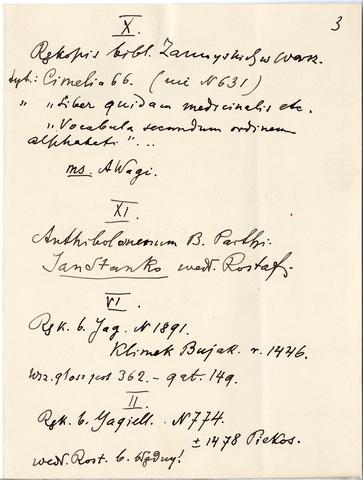 3
X.
Rękopis bibl. Zamoyskich w Warsz.
tyt: Cimelia 66. (nie N 631)
" „Liber quidam medicinalis etc.
„Vocabula secundum ordinem
alphabeti" ...
ms. A Wagi.
XI.
Antibolomenum B. Parthi.
Jan Stanko wedł. Rostaf.
VI.
Rgk. b. Jag. N 1891.
Klimek Bujak. r. 1446.
362. – gat. 149.
II.
Rgk. b. Jagiell. N 774.
± 1478 Piekos.
wedł. Rost. b. błędny!